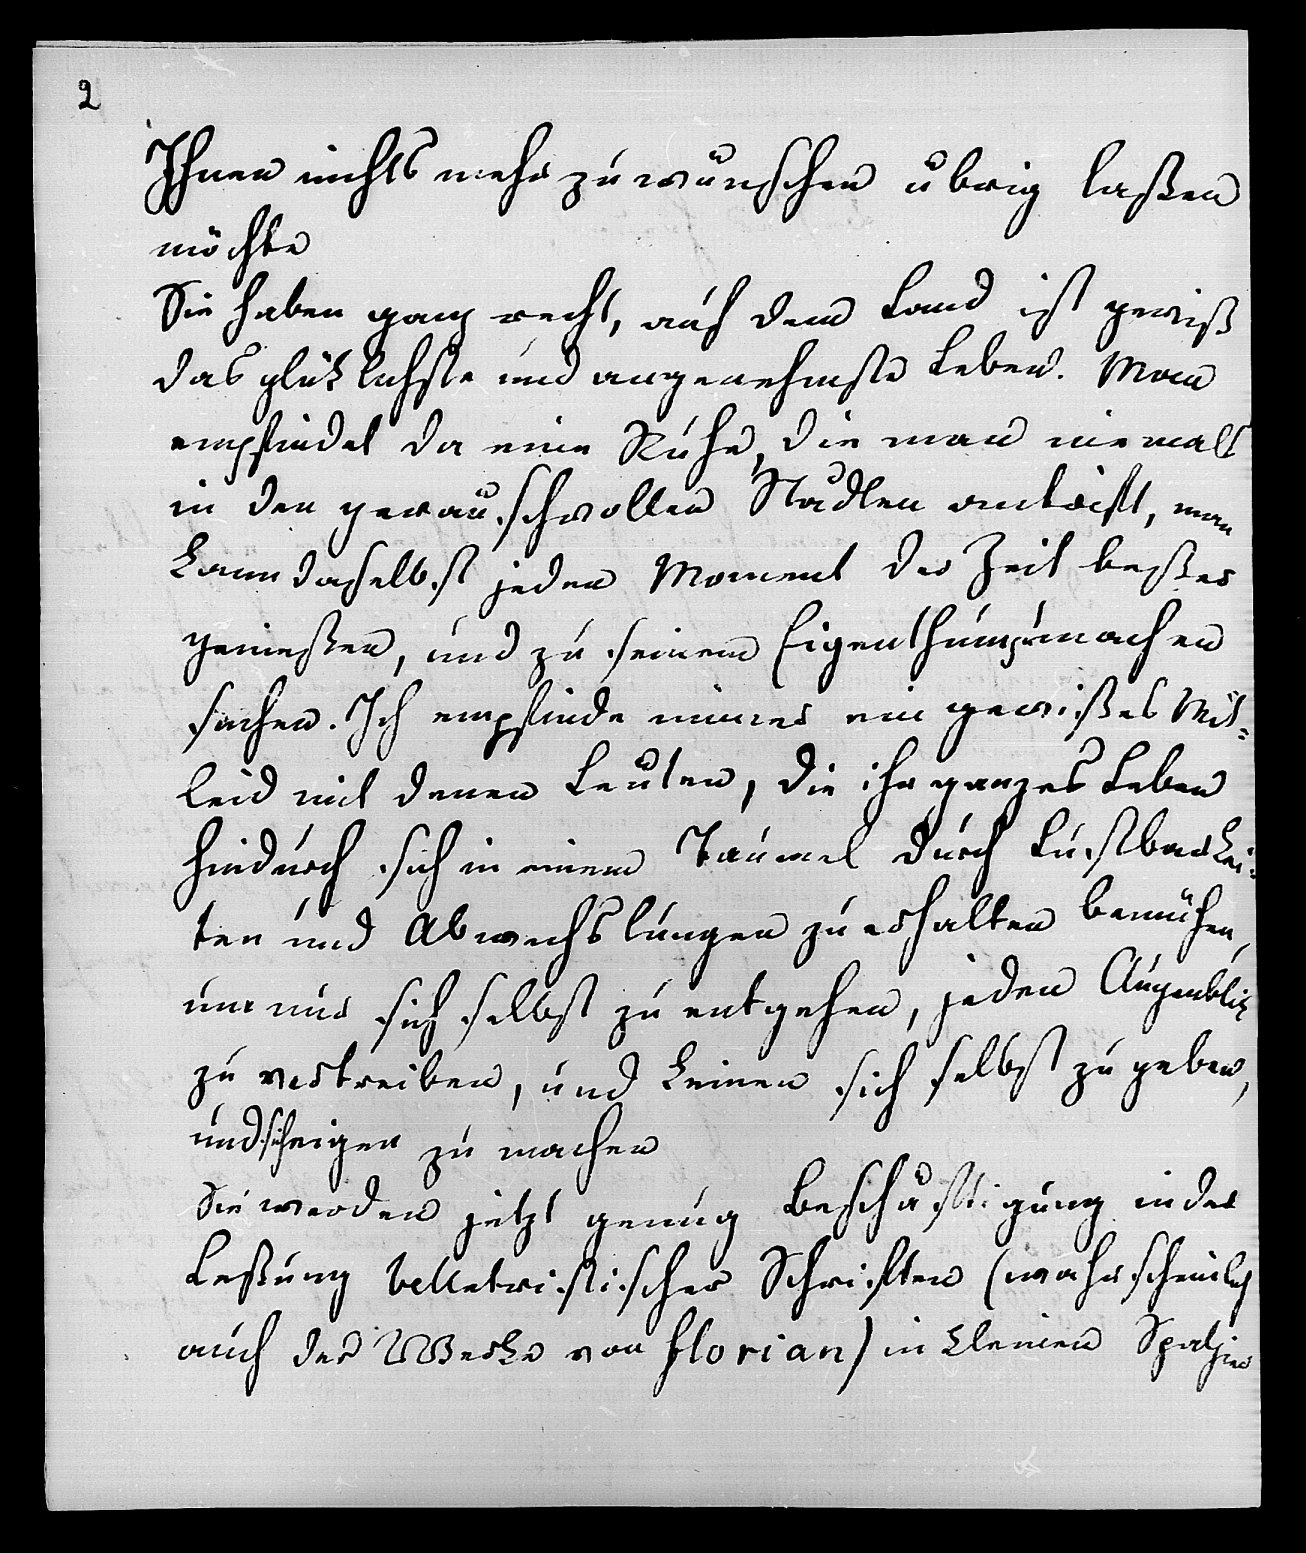 2
Ihnen nichts mehr zu wünschen übrig laßen
möchte
Sie haben ganz recht, auf dem Land ist gewiß
das glüklichste und angenehmste Leben. Man
empfindet da eine Ruhe, die man niemals
in den geräuschvollen Städten antrift, man
kann daselbst jeden Moment der Zeit beßer
genießen, und zu seinem Eigenthum machen
suchen. Ich empfinde immer ein gewißes Mit-
leid mit denen Leuten, die ihr ganzes Leben
hindurch sich in einem Taumel durch Lustbarkei-
ten und Abwechslungen zu erhalten bemühen,
um nur sich selbst zu entgehen, jeden Augenblik
zu vertreiben, und keinen sich selbst zu geben,
und sich eigen zu machen
Sie werden jetzt genug Beschäftigung in der
Leßung belletristischer Schriften (wahrscheinlich
auch der Werke von Florian) in kleinen Spatzier